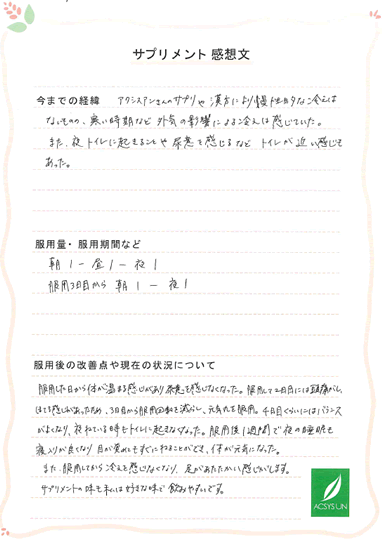 サプリメント 感想文
今までの経緯 アクシスアンさんのサプリや漢方により慢性的な冷えは
ないものの、寒い時期など外気の影響による冷えは感じていた。
また、夜トイレに起きることや尿意を感じるなどトイレが近い感じも
あった。
服用量・服用期間など
朝1－昼1－夜1
服用3日目から 朝1－夜1
服用後の改善点や現在の状況について
服用した日から体が温まる感じがあり尿意を感じなくなった。服用して2日目には頭痛がし、
ほてる感じがあったため、3日目から服用回数を減らし、元気れを服用。4日目くらいにはバランス
がよくなり、夜ねている時もトイレに起きなくなった。服用後1週間で夜の睡眠も
寝入りが良くなり 目が覚めてもすぐにねることができ、体が元気になった。
また、服用してから冷えを感じなくなり、足があたたかい感じがします。
サプリメントの味も私には好きな味で飲みやすいです。
ACSYSUN